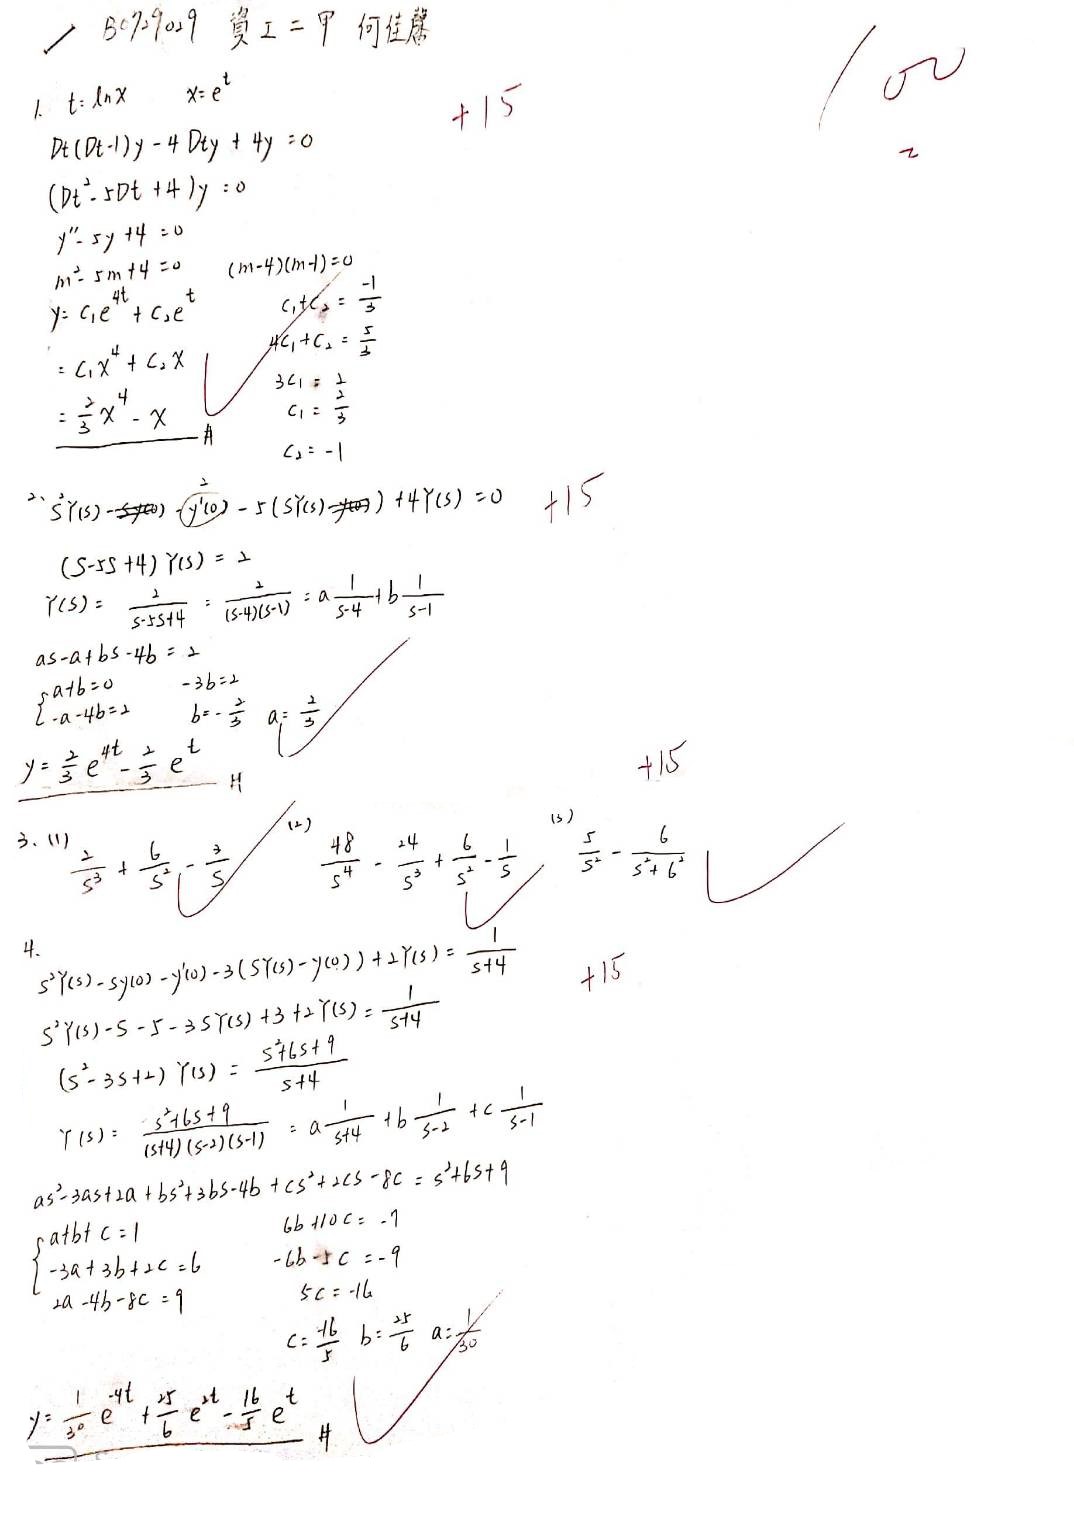 B0729029 資工二甲 何佳馨
100
2
1. t = lnx x = e^t
+15
Dt(Dt-1)y - 4Dty + 4y = 0
(Dt² - 5Dt + 4)y = 0
y'' - 5y + 4 = 0
m² - 5m + 4 = 0 (m-4)(m-1) = 0
y = c₁e^4t + c₂e^t c₁+c₂ = -1/3
= c₁x⁴ + c₂x 4c₁+c₂ = 5/3
3c₁ = 2
= 2/3 x⁴ - x c₁ = 2/3
c₂ = -1
2、 s²Y(s) - sy(0) - y'(0) - 5(sY(s) - y(0)) + 4Y(s) = 0
2
+15
(s-5s+4) Y(s) = 2
Y(s) = 2/(s-5s+4) = 2/((s-4)(s-1)) = a 1/(s-4) + b 1/(s-1)
as-a+bs-4b = 2
{ a+b=0 -3b=2
-a-4b=2 b=-2/3 a=2/3
y = 2/3 e^4t - 2/3 e^t
+15
3. (1) 2/s³ + 6/s² - 3/s (2) 48/s⁴ - 24/s³ + 6/s² - 1/s (3) 5/s² - 6/(s²+6²)
4.
s²Y(s) - sy(0) - y'(0) - 3(sY(s) - y(0)) + 2Y(s) = 1/(s+4)
+15
s²Y(s) - s - 5 - 3sY(s) + 3 + 2Y(s) = 1/(s+4)
(s² - 3s + 2) Y(s) = (s²+6s+9)/(s+4)
Y(s) = (s²+6s+9)/((s+4)(s-2)(s-1)) = a 1/(s+4) + b 1/(s-2) + c 1/(s-1)
as²-3as+2a + bs²+3bs-4b + cs²+2cs-8c = s²+6s+9
{ a+b+c = 1 6b+10c = -7
-3a+3b+2c = 6 -6b-5c = -9
2a-4b-8c = 9 5c = -16
c = -16/5 b = 25/6 a = 1/30
y = 1/30 e^-4t + 25/6 e^2t - 16/5 e^t